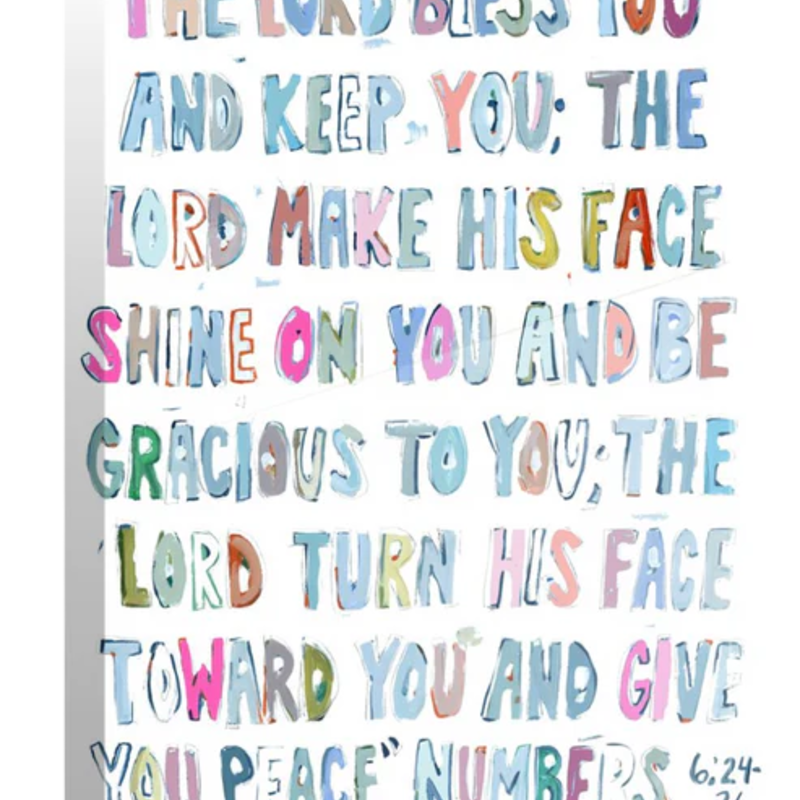 THE LORD BLESS YOU
AND KEEP YOU; THE
LORD MAKE HIS FACE
SHINE ON YOU AND BE
GRACIOUS TO YOU; THE
LORD TURN HIS FACE
TOWARD YOU AND GIVE
YOU PEACE" NUMBERS 6:24-
26